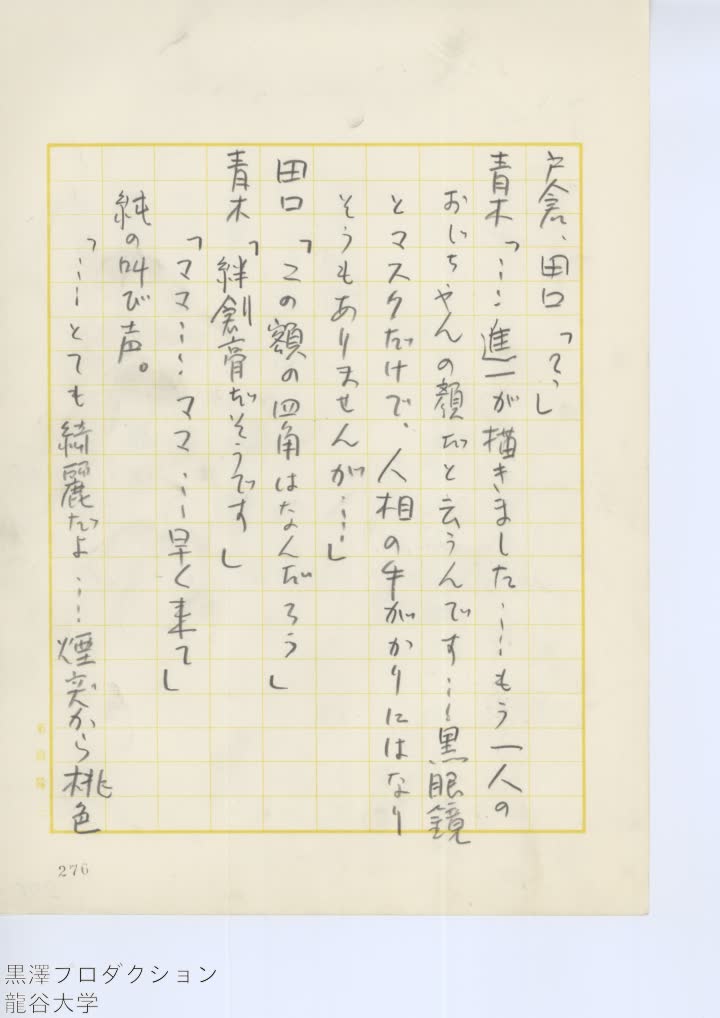 戸倉、田口「？」
青木「……進一が描きました……もう一人の
おじちゃんの顔だと云うんです……黒眼鏡
とマスクだけで、人相の手がかりにはなり
そうもありませんが……」
田口「この額の四角はなんだろう」
青木「絆創膏だそうです」
「ママ……ママ……早く来て」
純の叫び声。
「……とても綺麗だよ……煙突から桃色
276
黒澤プロダクション
龍谷大学